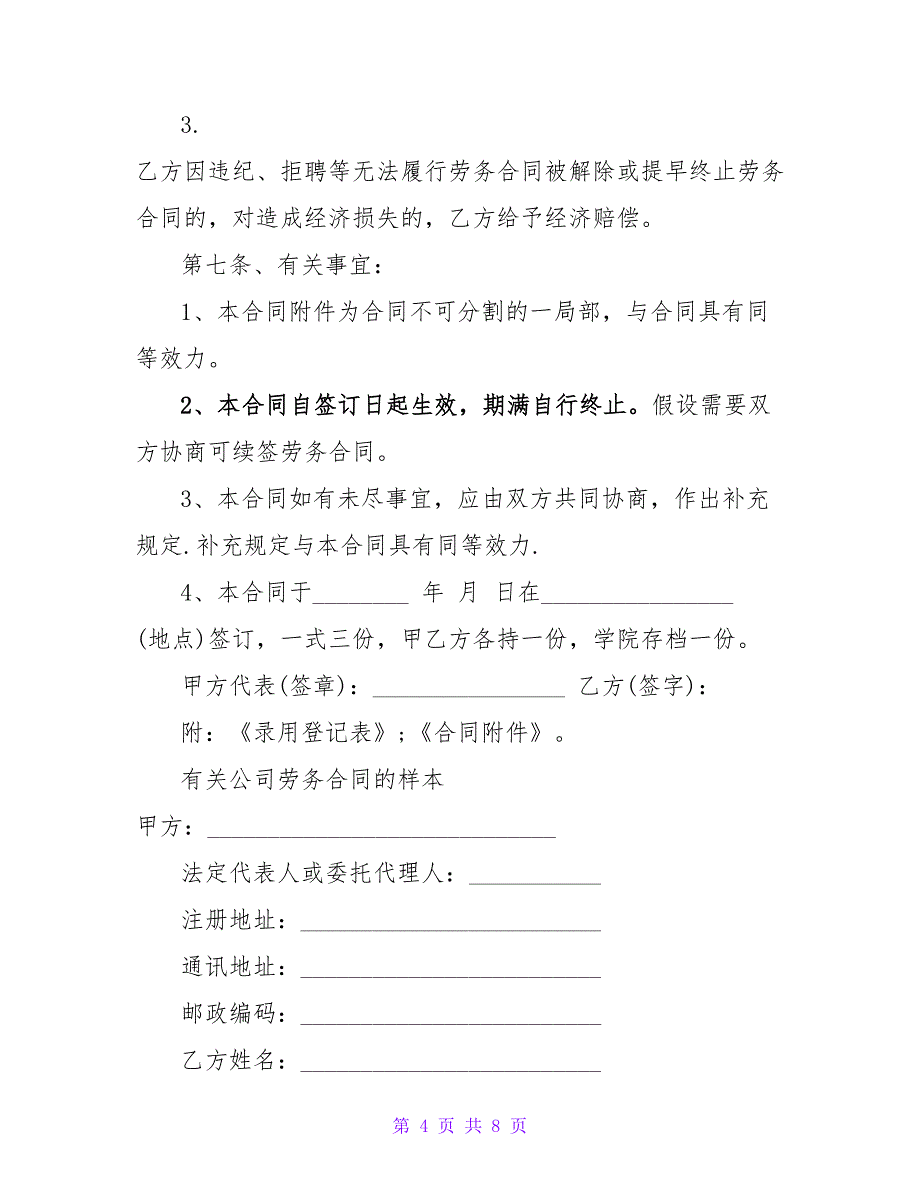 3.
乙方因违纪、拒聘等无法履行劳务合同被解除或提早终止劳务
合同的，对造成经济损失的，乙方给予经济赔偿。
第七条、有关事宜：
1、本合同附件为合同不可分割的一局部，与合同具有同
等效力。
2、本合同自签订日起生效，期满自行终止。假设需要双
方协商可续签劳务合同。
3、本合同如有未尽事宜，应由双方共同协商，作出补充
规定.补充规定与本合同具有同等效力.
4、本合同于________ 年 月 日在________________
(地点)签订，一式三份，甲乙方各持一份，学院存档一份。
甲方代表(签章)：________________ 乙方(签字)：
附：《录用登记表》;《合同附件》。
有关公司劳务合同的样本
甲方：_____________________________
法定代表人或委托代理人：___________
注册地址：_________________________
通讯地址：_________________________
邮政编码：_________________________
乙方姓名：_________________________
第 4 页 共 8 页